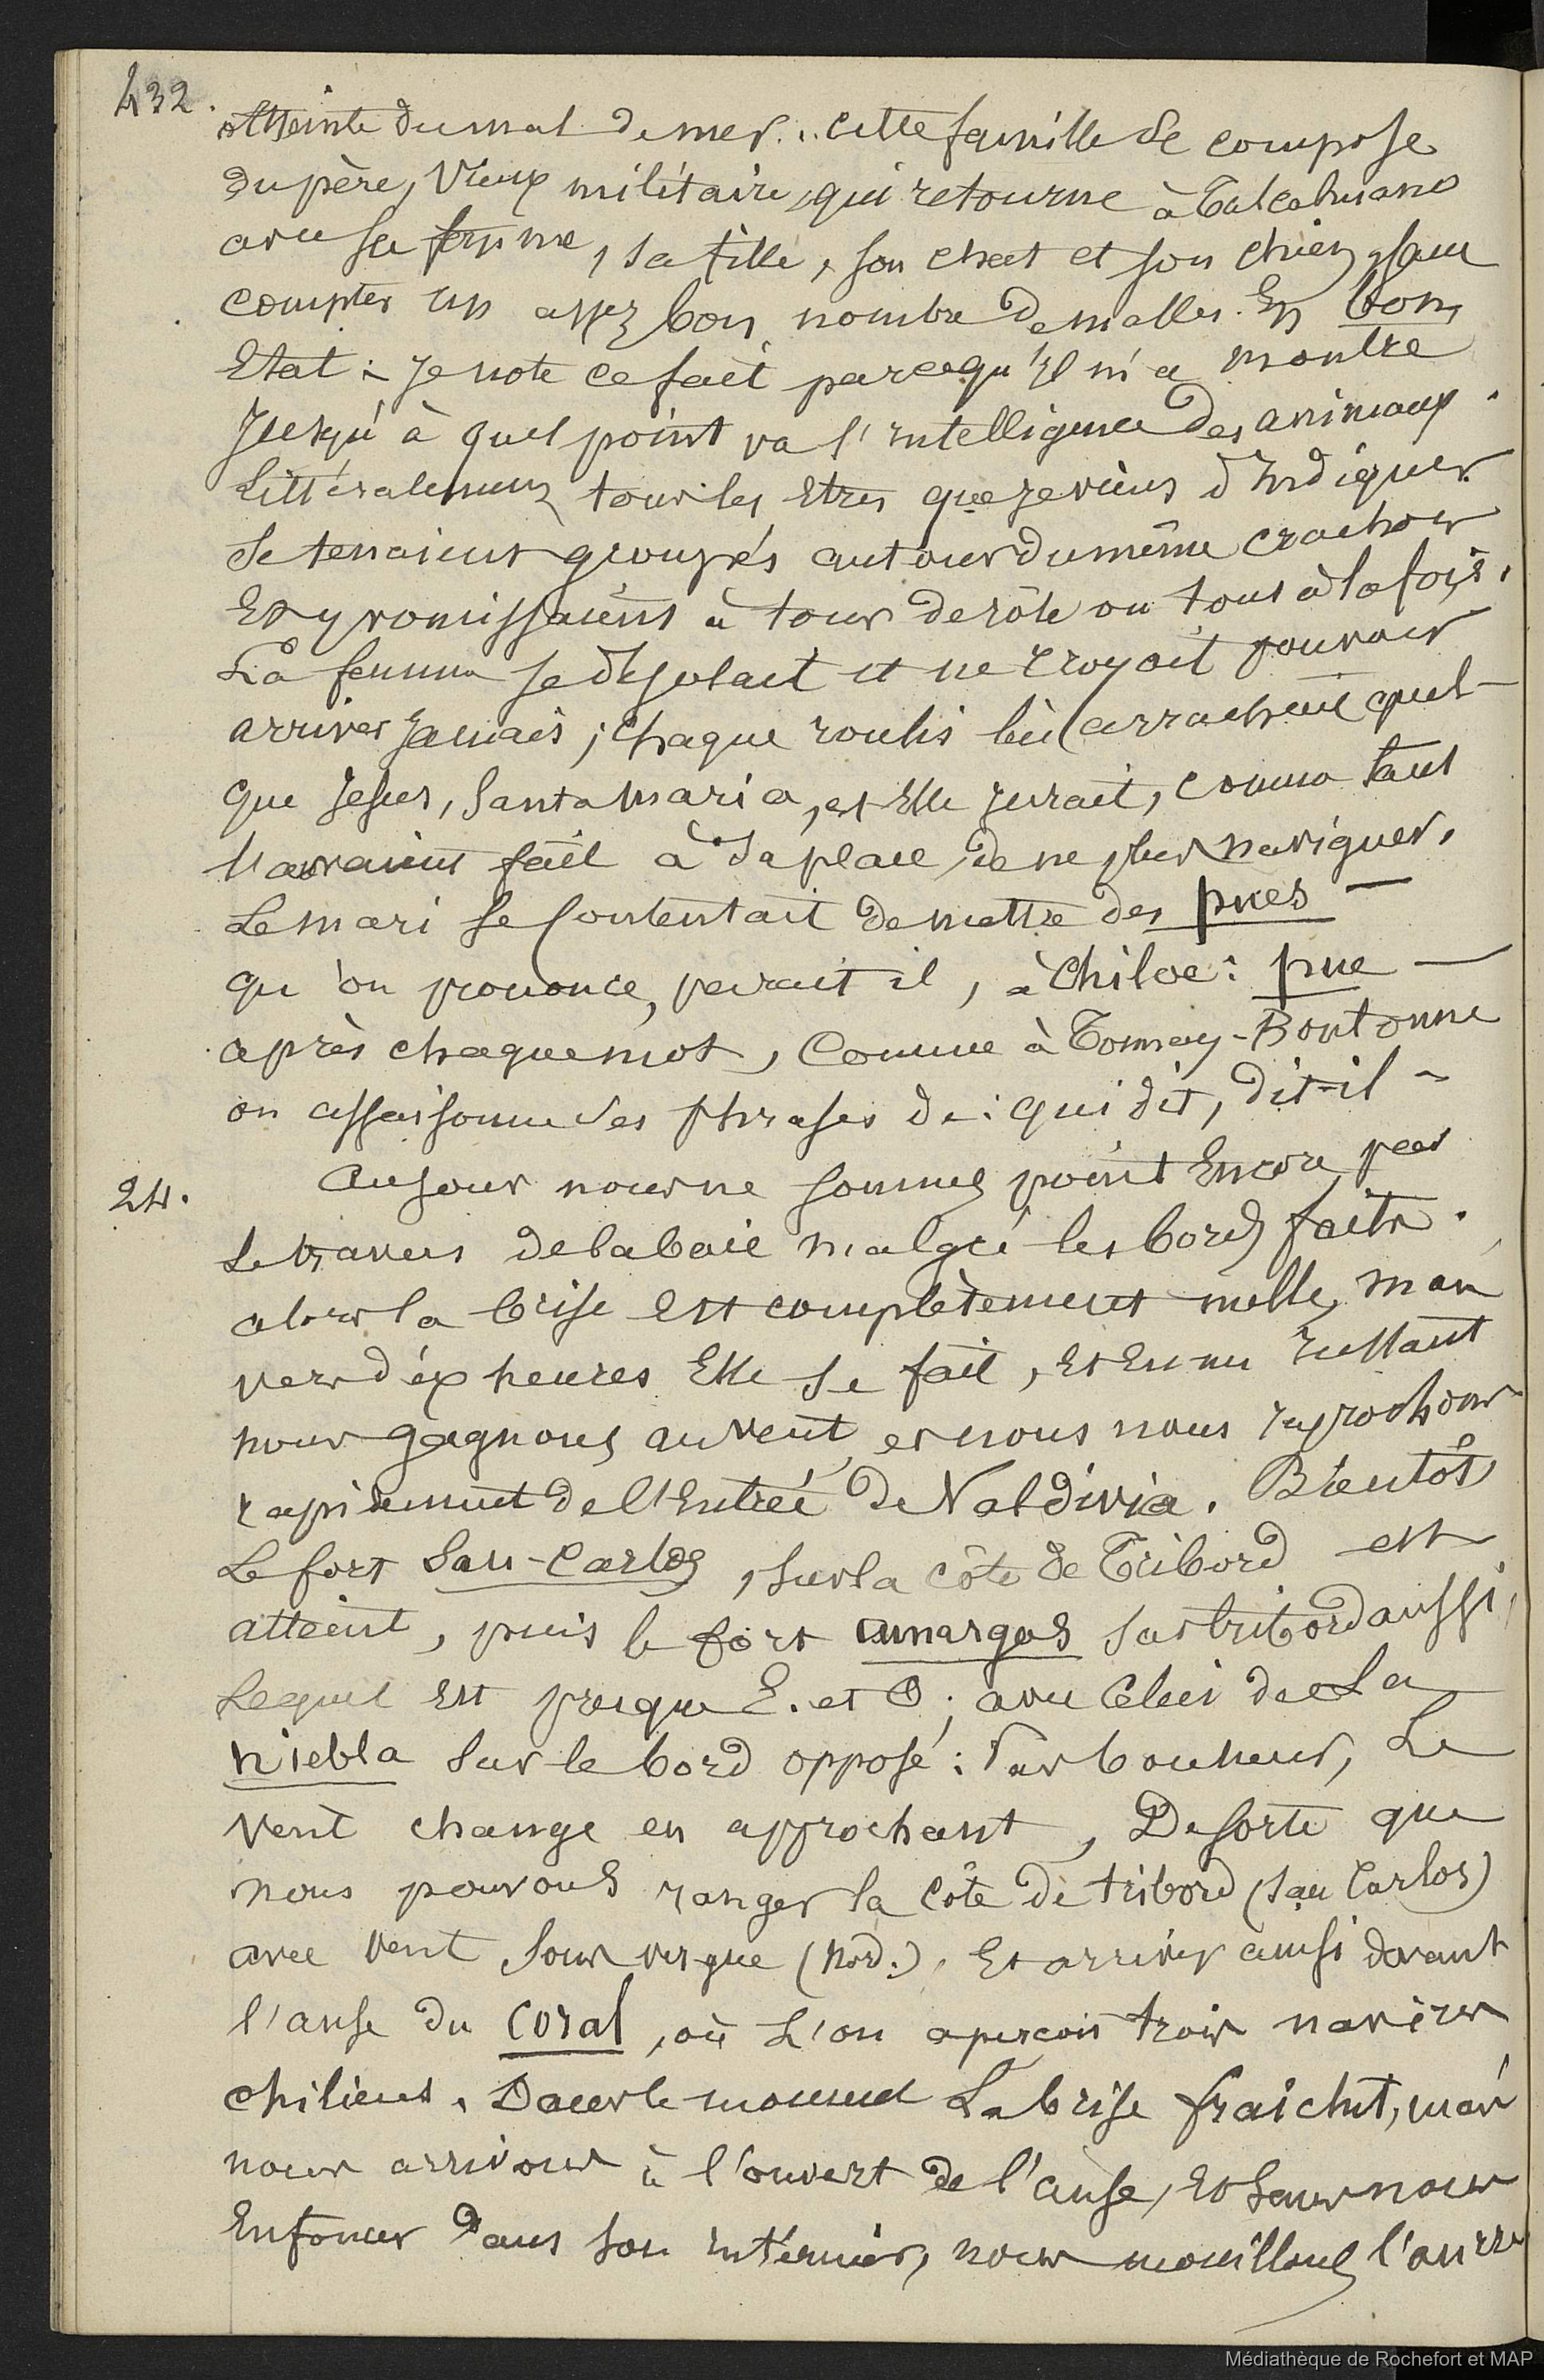 432.
atteinte du mal de mer... cette famille se compose
du père, vieux militaire, qui retourne à Talcahuano
avec sa femme, sa fille, son chat et son chien, sans
compter un assez bon nombre de malles. En bon
Etat :- Je note ce fait parcequ'il m'a montré
jusqu'à quel point va l'intelligence des animaux.
Littéralement tous les Etres que je viens d'indiquer
se tenaient groupés autour du même crachoir
Et y vomissaient à tour de rôle ou tous à la fois.
La femme se désolait et ne croyait pouvoir
arriver jamais ; chaque roulis lui arrachait quel-
que Jesus, Santa Maria, et Elle jurait, comme tant
l'auraient fait à sa place, de ne plus naviguer.
Le mari se contentait de mettre des pues —
qu'on prononce, parait il, à Chiloe : pue —
après chaque mot, comme à Tonnay-Boutonne
on assaisonne ses phrases de : qui dit, dit-il -
24.
Au jour nous ne sommes point Encore par
le travers de la baie malgré les bords faits.
alors la brise est complètement nulle, mais
vers dix heures Elle se fait, Et En un instant
nous gagnons au vent, et nous nous raprochons
rapidement de l'Entrée de Valdivia. Bientôt
Le fort San-Carlos, sur la côte de Tribord est
atteint, puis le fort amargos sur tribord aussi,
Lequel Est presque E. et O ; avec celui de La
niebla sur le bord opposé : Par bonheur, Le
vent change en approchant, De sorte que
nous pouvons ranger la côte de tribord (San Carlos)
avec vent sous vergue (Nord.), Et arriver ainsi devant
l'anse du Coral, où L'on aperçoit trois navires
chiliens. Dans le moment La brise fraichit, mais
nous arrivons à l'ouvert de l'anse, Et sans nous
Enfoncer dans son intérieur, nous mouillons l'ancre
Médiathèque de Rochefort et MAP